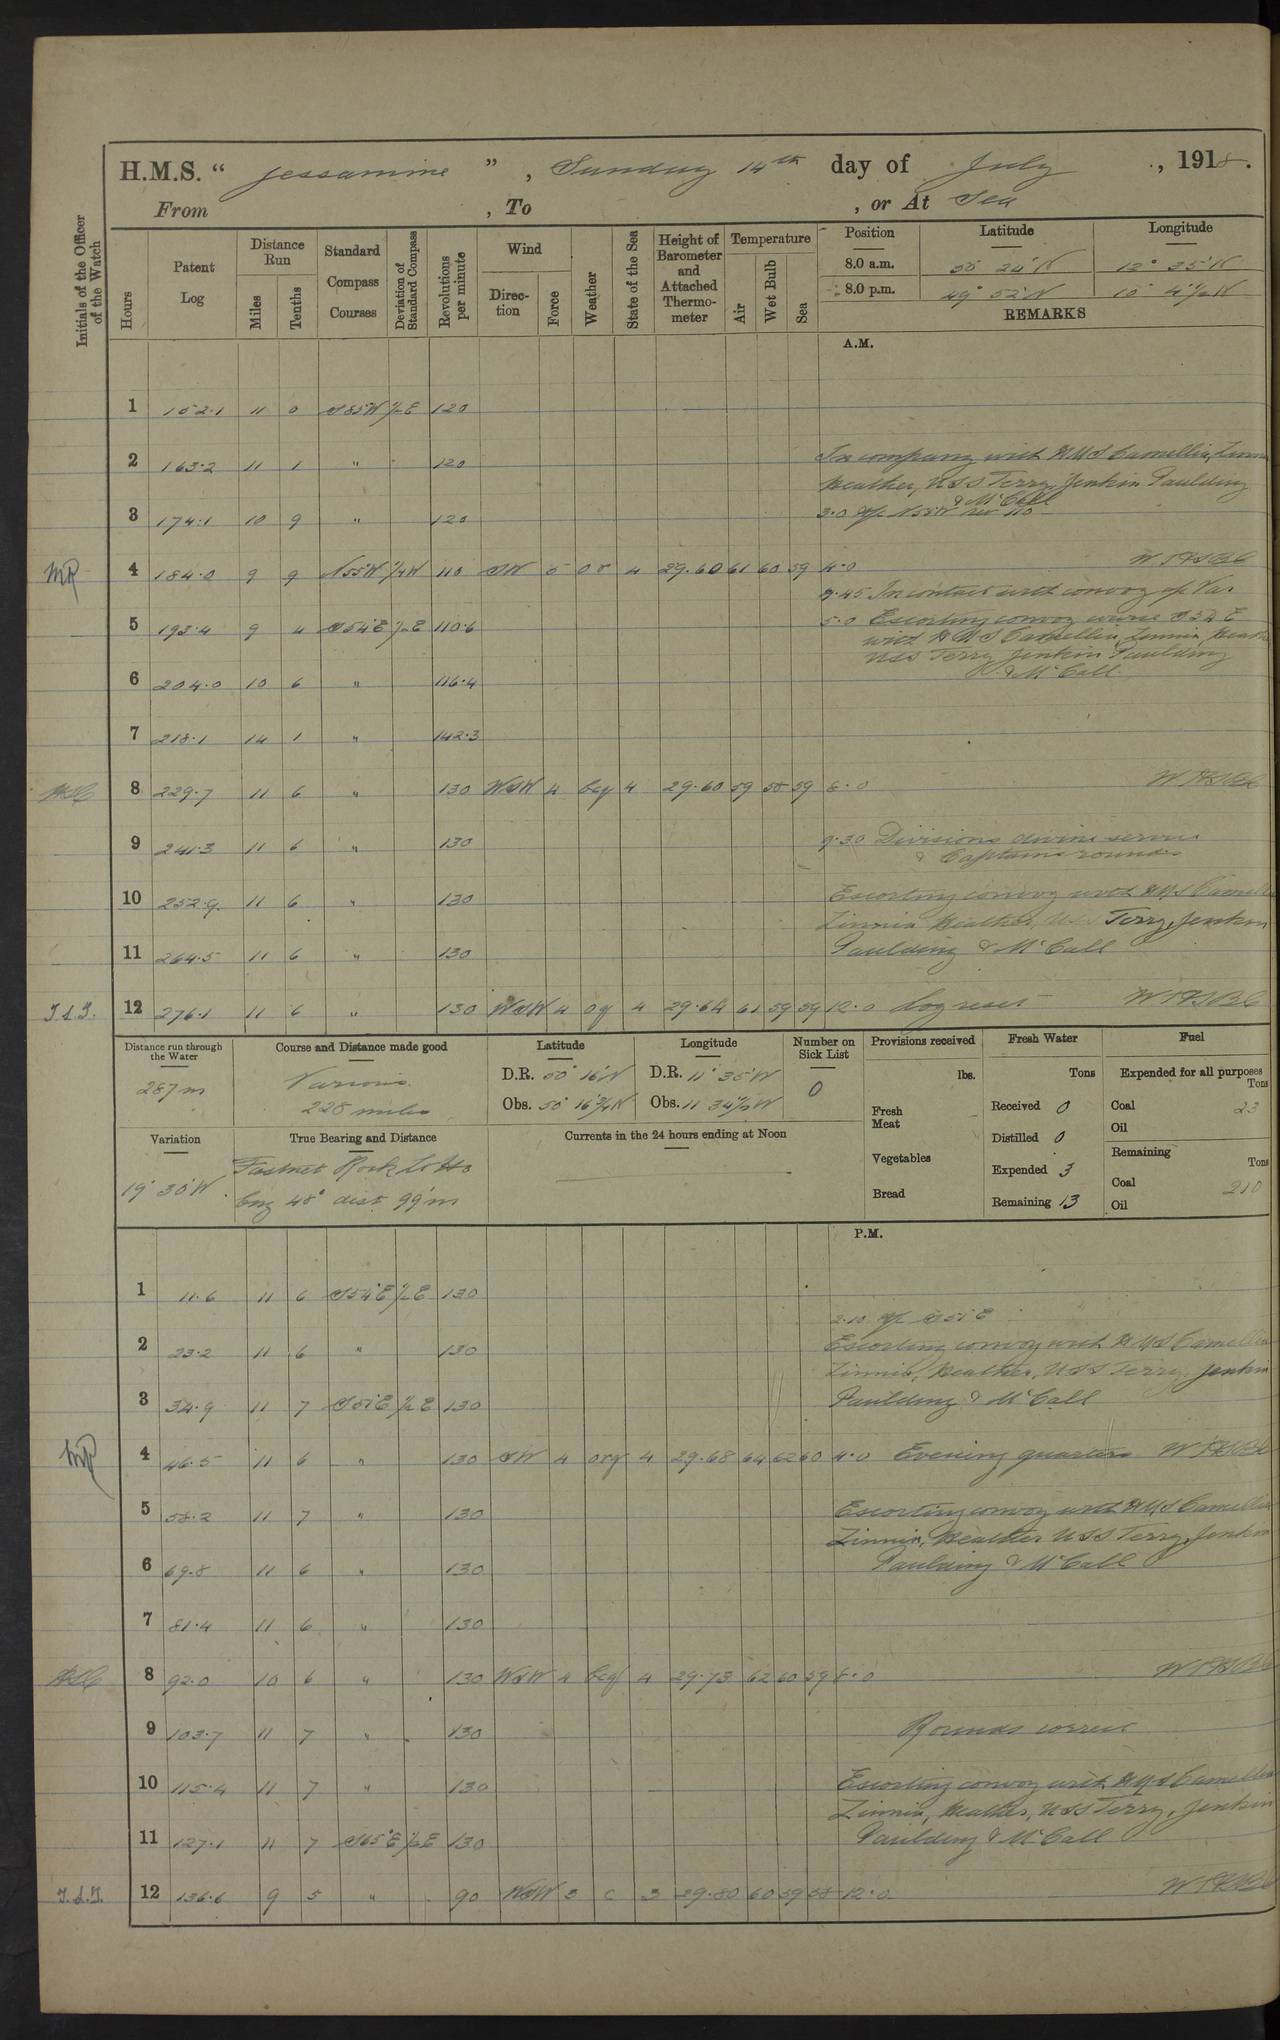 H.M.S. “ Jessamine ” , Sunday 14th day of July , 1918.
From , To , or At Sea
Initials of the Officer of the Watch
Hours
Patent Log
Distance Run
Miles
Tenths
Standard Compass Courses
Deviation of Standard Compass
Revolutions per minute
Wind
Direction
Force
Weather
State of the Sea
Height of Barometer and Attached Thermometer
Temperature
Air
Wet Bulb
Sea
Position Latitude Longitude
8.0 a.m. 50° 24' N 12° 35' W
8.0 p.m. 49° 52' N 10° 4½ W
REMARKS
A.M.
1 152.1 11 0 S85W ½E 120
2 163.2 11 1 " 120
In company with HMS Camellia, Zinnia
Heather, USS Terry, Jenkin Paulding
& McCall
3 174.1 10 9 " 120
3.0 a/c N55W rev 110
MR 4 184.0 9 9 N55W ¼W 110 SW 5 29.60 61 60 59 4.0
In contact with convoy a/c Var
5 193.4 9 4 S54E ½E 110.6
5.0 Escorting convoy course S54E
with HMS Camellia, Zinnia, Heather
USS Terry Jenkin Paulding
& McCall
6 204.0 10 6 " 116.4
7 218.1 14 1 " 142.3
8 229.7 11 6 " 130 WSW 4 bcq 4 29.60 59 58 59 8.0
9 241.3 11 6 " 130
9.30 Divisions divine service
& Captains rounds
10 252.9 11 6 " 130
Escorting convoy with HMS Camellia
Zinnia Heather, USS Terry, Jenkin
11 264.5 11 6 " 130
Paulding & McCall
12 276.1 11 6 " 130 WSW 4 oq 4 29.64 61 59 59 12.0 Log reset
Distance run through the Water
287m
Course and Distance made good
Various
228 miles
Latitude
D.R. 50° 16' N
Obs. 50° 16¾ N
Longitude
D.R. 11° 35' W
Obs. 11 34½ W
Number on Sick List
0
Provisions received
lbs.
Fresh Meat
Vegetables
Bread
Fresh Water
Tons
Received 0
Distilled 0
Expended 3
Remaining 13
Fuel
Expended for all purposes
Tons
Coal 23
Oil
Remaining
Tons
Coal 210
Oil
Variation
19° 30' W
True Bearing and Distance
Fastnet Rock
48° dist 99'm
Currents in the 24 hours ending at Noon
P.M.
1 11.6 11 6 S54°E ½E 130
2.10 a/c S51°E
2 23.2 11 6 " 130
Escorting convoy with HMS Camellia
Zinnia, Heather, USS Terry, Jenkin
3 34.9 11 7 S51°E ½E 130
Paulding & McCall
MR 4 46.5 11 6 " 130 SW 4 orq 4 29.68 64 62 60 4.0 Evening quarters
5 58.2 11 7 " 130
Escorting convoy with HMS Camellia
Zinnia, Heather USS Terry, Jenkin
6 69.8 11 6 " 130
Paulding & McCall
7 81.4 11 6 " 130
8 92.0 10 6 " 130 WSW 4 bcq 4 29.73 62 60 59 8.0
9 103.7 11 7 " 130
Rounds correct
10 115.4 11 7 " 130
Escorting convoy with HMS Camellia
Zinnia, Heather, USS Terry, Jenkin
11 127.1 11 7 S65°E ½E 130
Paulding & McCall
12 136.6 9 5 " 90 WSW 3 c 3 29.80 60 59 58 12.0